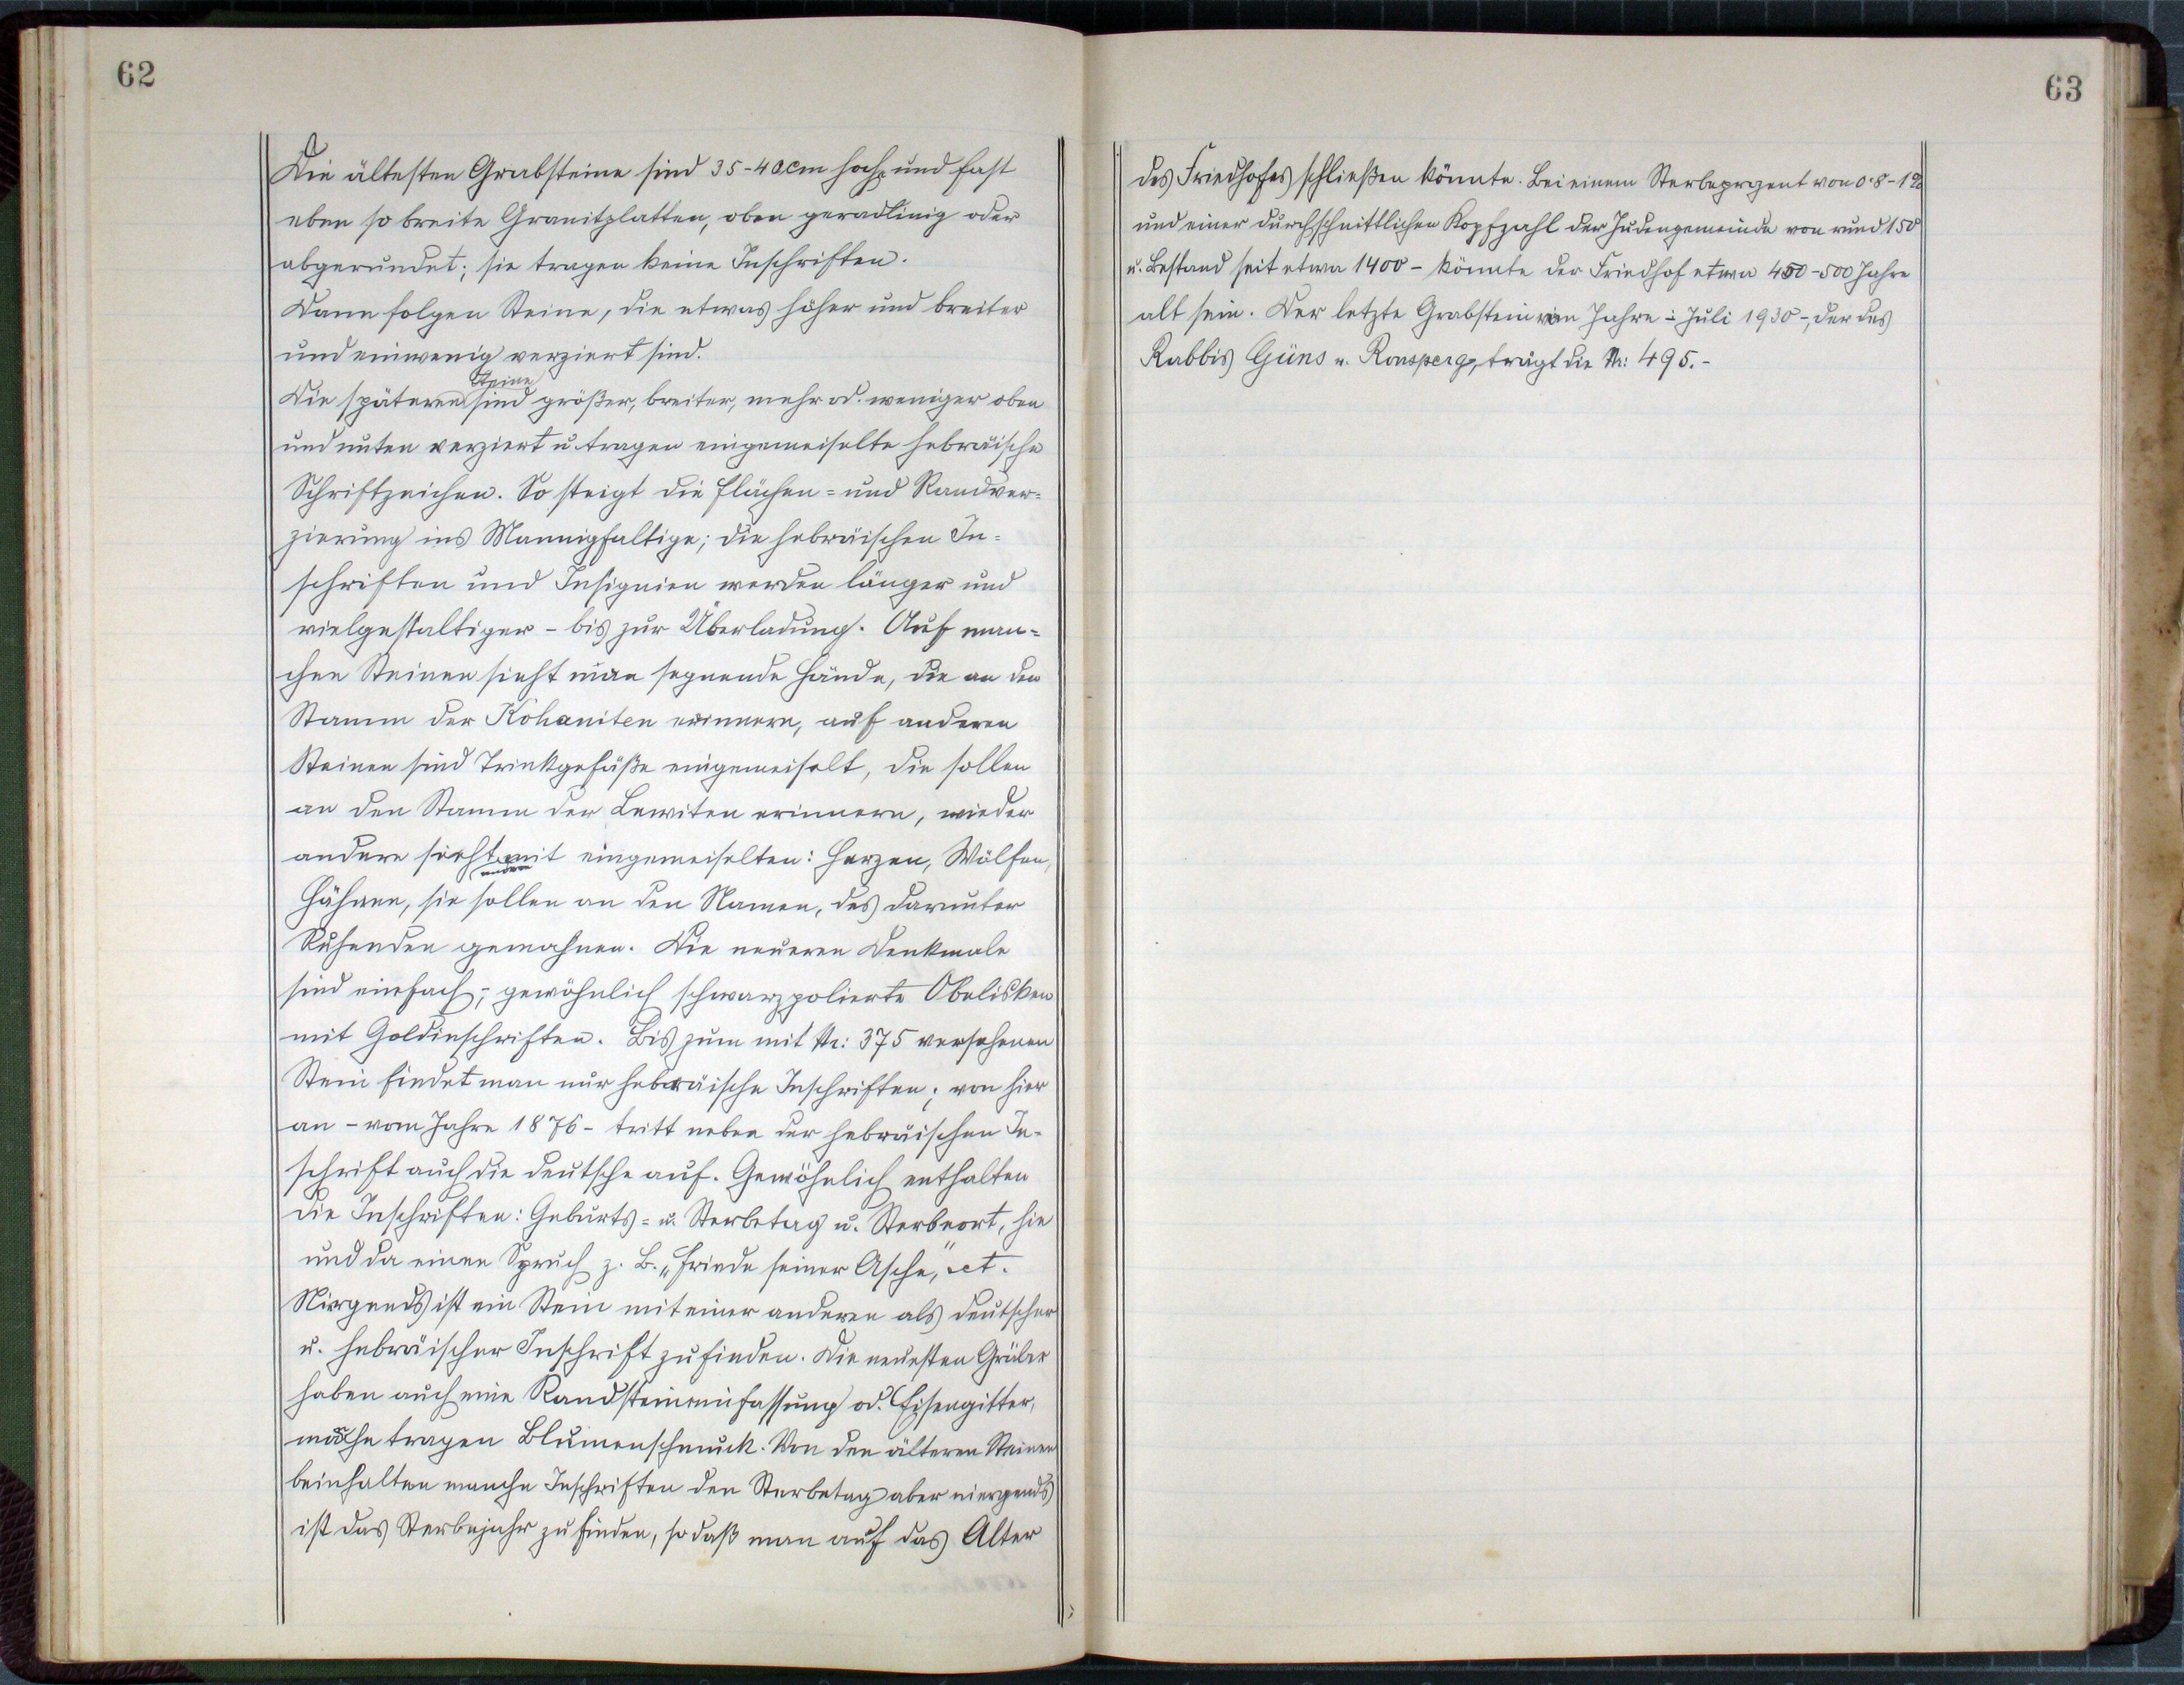 62
Die ältesten Grabsteine sind 35-40cm hohe und fast
eben so breite Granitplatten, oben geradlinig oder
abgerundet; sie tragen keine Inschriften.
Dann folgen Steine, die etwas höher und breiter
und einwenig verziert sind.
Steine
Die späteren sind größer, breiter, mehr od. weniger oben
und unten verziert u. tragen eingemeiselte hebräische
Schriftzeichen. So steigt die Flächen= und Randver=
zierung ins Mannigfaltige; die hebräischen In=
schriften und Insignien werden länger und
vielgestaltiger - bis zur Überladung. Auf man=
chen Steinen sieht man segnende Hände, die an den
Stamm der Kohaniten erinnern, auf anderen
Steinen sind Trinkgefäße eingemeiselt, die sollen
an den Stamm der Lewiten erinnern, wieder
andere sieht mit eingemeiselten: Herzen, Wölfen,
Hähnen, sie sollen an den Namen, des darunter
Ruhenden gemahnen. Die neueren Denkmale
sind einfach,- gewöhnlich schwarzpolierte Obelisken
mit Goldinschriften. Bis zum mit Nr: 375 versehenen
Stein findet man nur hebräische Inschriften; von hier
an - vom Jahre 1876 - tritt neben der hebräischen In-
schrift auch die deutsche auf. Gewöhnlich enthalten
die Inschriften: Geburts= u. Sterbetag u. Sterbeort, hie
und da einen Spruch z. B. „Friede seiner Asche," ect.
Nirgends ist ein Stein mit einer anderen als deutscher
u. hebräischer Inschrift zu finden. Die neuesten Gräber
haben auch eine Randsteineinfassung od. Eisengitter,
manche tragen Blumenschmuck. Von den älteren Steinen
beinhalten manche Inschriften den Sterbetag aber niergends
ist das Sterbejahr zu finden, so daß man auf das Alter
63
des Friedhofes schließen könnte. Bei einem Sterbeprozent von 0·8-1%
und einer durchschnittlichen Kopfzahl der Judengemeinde von rund 150
u. Bestand seit etwa 1400 - könnte der Friedhof etwa 450-500 Jahre
alt sein. Der letzte Grabstein von Jahre - Juli 1930 -, der des
Rabbis Güns v. Ronsperg, trägt die Nr: 495.-